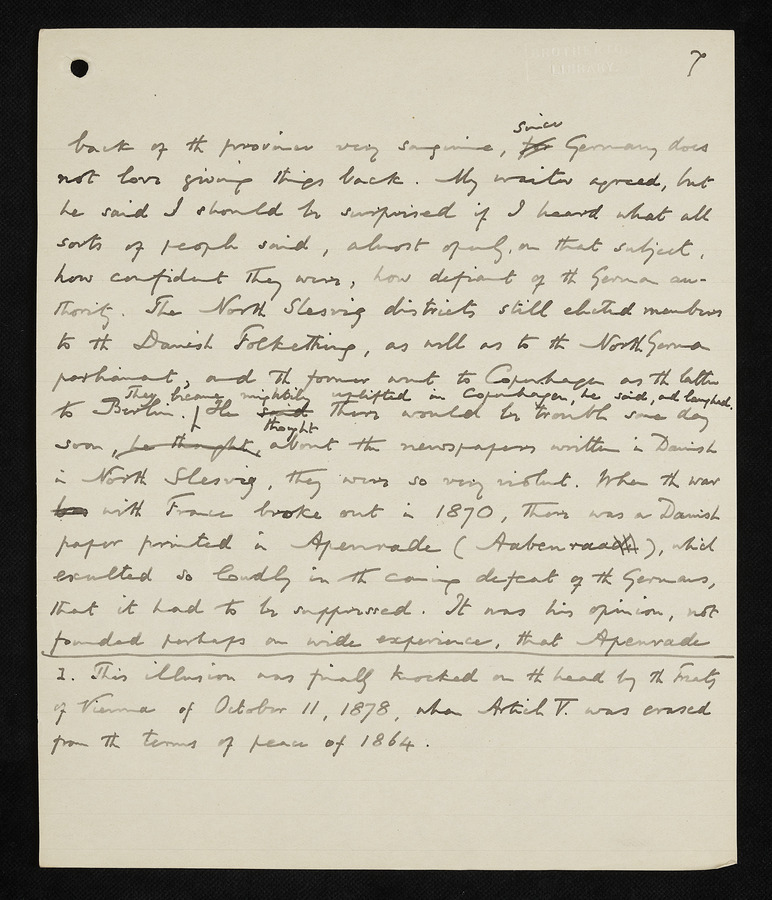 7
since
back of th province very sanguine, for Germany does
not love giving things back. My waiter agreed, but
he said I should be surprised if I heard what all
sorts of people said, almost openly, on that subject,
how confident they were, how defiant of th German au-
thority. The North Slesvig districts still elected members
to th Danish Folkething, as well as to th North German
parliament, and th former went to Copenhagen as th latter
They became mightily uplifted in Copenhagen, he said, and laughed.
to Berlin. He said there would be trouble some day
thought
soon, he thought, about the newspapers written in Danish
in North Slesvig, they were so very violent. When th war
with France broke out in 1870, there was a Danish
paper printed in Apenrade (Aabenraa), which
exulted so loudly in th coming defeat of th Germans,
that it had to be suppressed. It was his opinion, not
founded perhaps on wide experience, that Apenrade
1. This illusion was finally knocked on th head by th Treaty
of Vienna of October 11, 1878, when Article V. was erased
from th terms of peace of 1864.